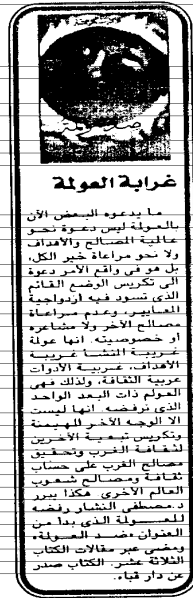 ضد العولمة
غرابة العولمة
ما يدعوه البعض الآن
بالعولمة ليس دعوة نحو
عالمية المصالح والأهداف
ولا نحو مراعاة خير الكل،
بل هو فى واقع الأمر دعوة
الى تكريس الوضع القائم
الذى تسود فيه ازدواجية
المعايير، وعدم مراعاة
مصالح الآخر ولا مشاعره
أو خصوصيته. انها عولمة
غريبة المنشأ غريبة
الأهداف، غربية الأدوات
غربية الثقافة، ولذلك فهى
العولم ذات البعد الواحد
الذى نرفضه. انها ليست
الا الوجه الآخر للهيمنة
وتكريس تبعية الآخرين
لثقافة الغرب وتحقيق
مصالح الغرب على حساب
ثقافة ومصالح شعوب
العالم الأخرى. هكذا يبرر
د. مصطفى النشار رفضه
للعولمة الذى بدأ من
العنوان «ضد العولمة»
ومضى عبر مقالات الكتاب
الثلاثة عشر. الكتاب صدر
عن دار قباء.